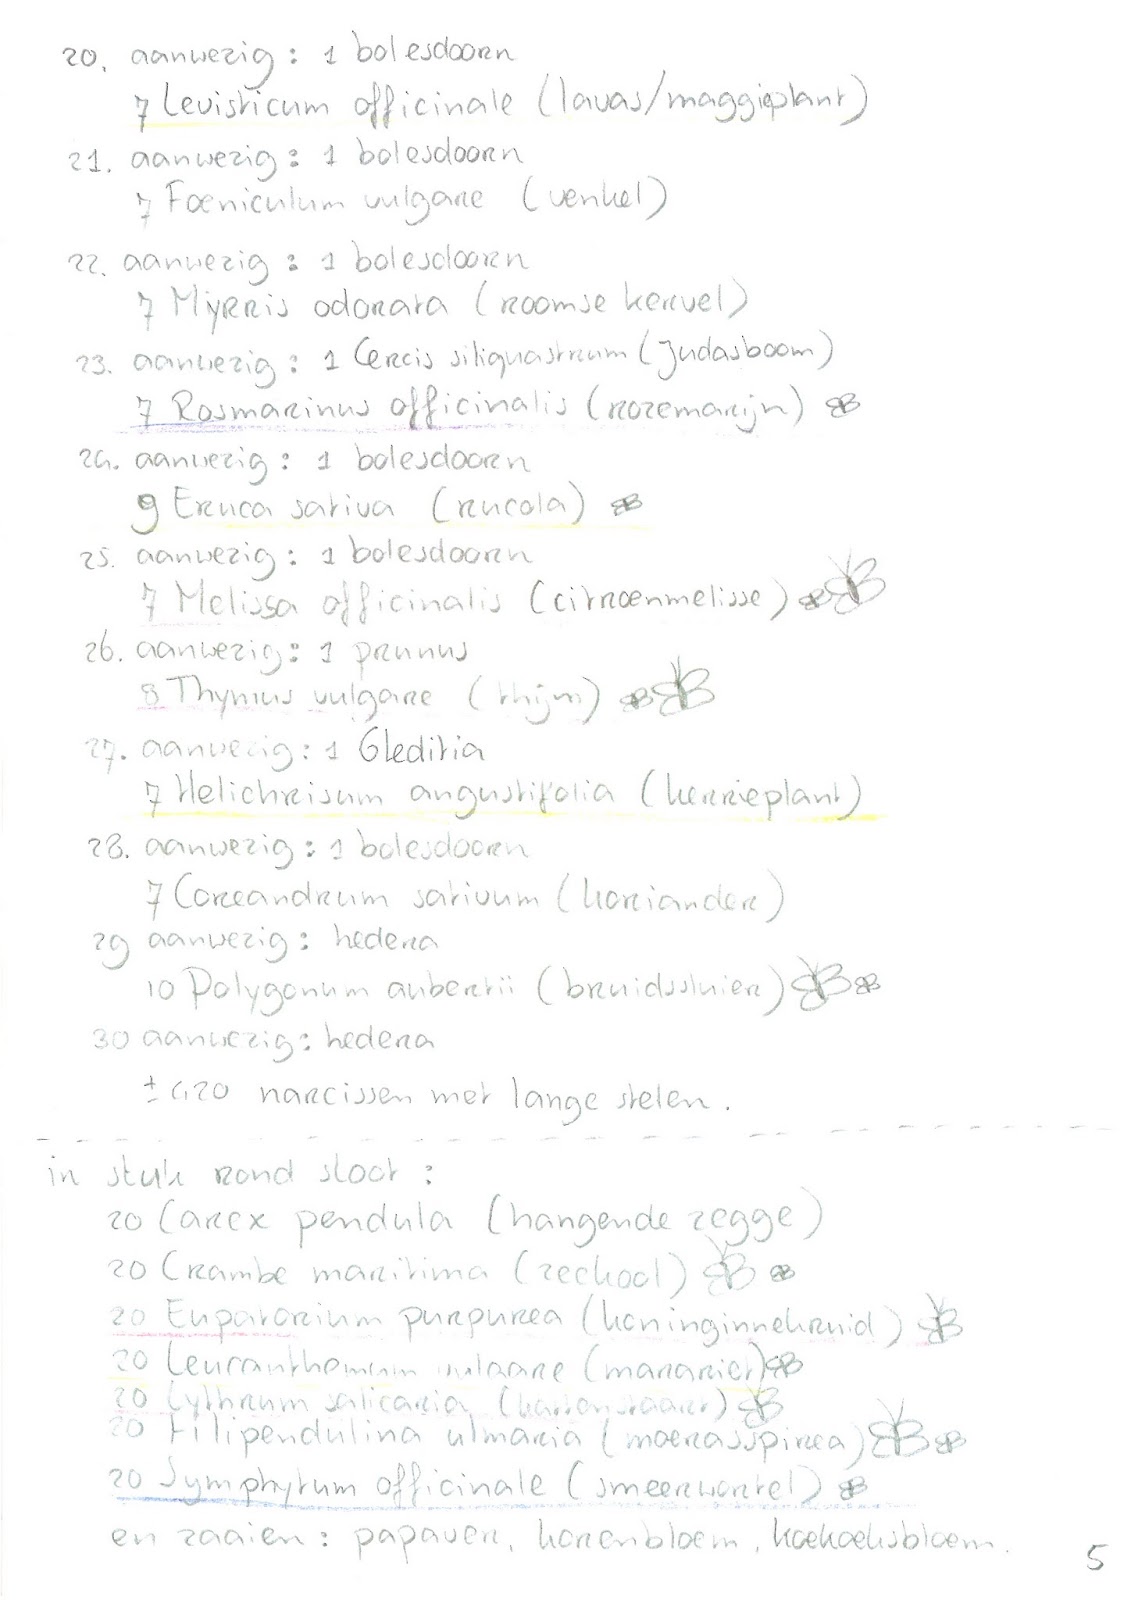 20. aanwezig : 1 bolesdoorn
7 Levisticum officinale (lavas/maggieplant)
21. aanwezig : 1 bolesdoorn
7 Foeniculum vulgare (venkel)
22. aanwezig : 1 bolesdoorn
7 Myrris odorata (roomse kervel)
23. aanwezig : 1 Cercis siliquastrum (Judasboom)
7 Rosmarinus officinalis (rozemarijn)
24. aanwezig : 1 bolesdoorn
9 Eruca sativa (rucola)
25. aanwezig : 1 bolesdoorn
7 Melissa officinalis (citroenmelisse)
26. aanwezig : 1 prunus
8 Thymus vulgare (thijm)
27. aanwezig : 1 Gleditia
7 Helichrisum angustifolia (kerrieplant)
28. aanwezig : 1 bolesdoorn
7 Coreandrum sativum (koriander)
29 aanwezig : hedera
10 Polygonum aubertii (bruidssluier)
30 aanwezig : hedera
± 420 narcissen met lange stelen.
in stuk rond sloot :
20 Carex pendula (hangende zegge)
20 Crambe maritima (zeekool)
20 Eupatorium purpurea (koninginnekruid)
20 Leucanthemum vulgare (margriet)
20 Lythrum salicaria (kattenstaart)
20 Filipendulina ulmaria (moerasspirea)
20 Symphytum officinale (smeerwortel)
en zaaien : papaver, korenbloem, koekoeksbloem.
5